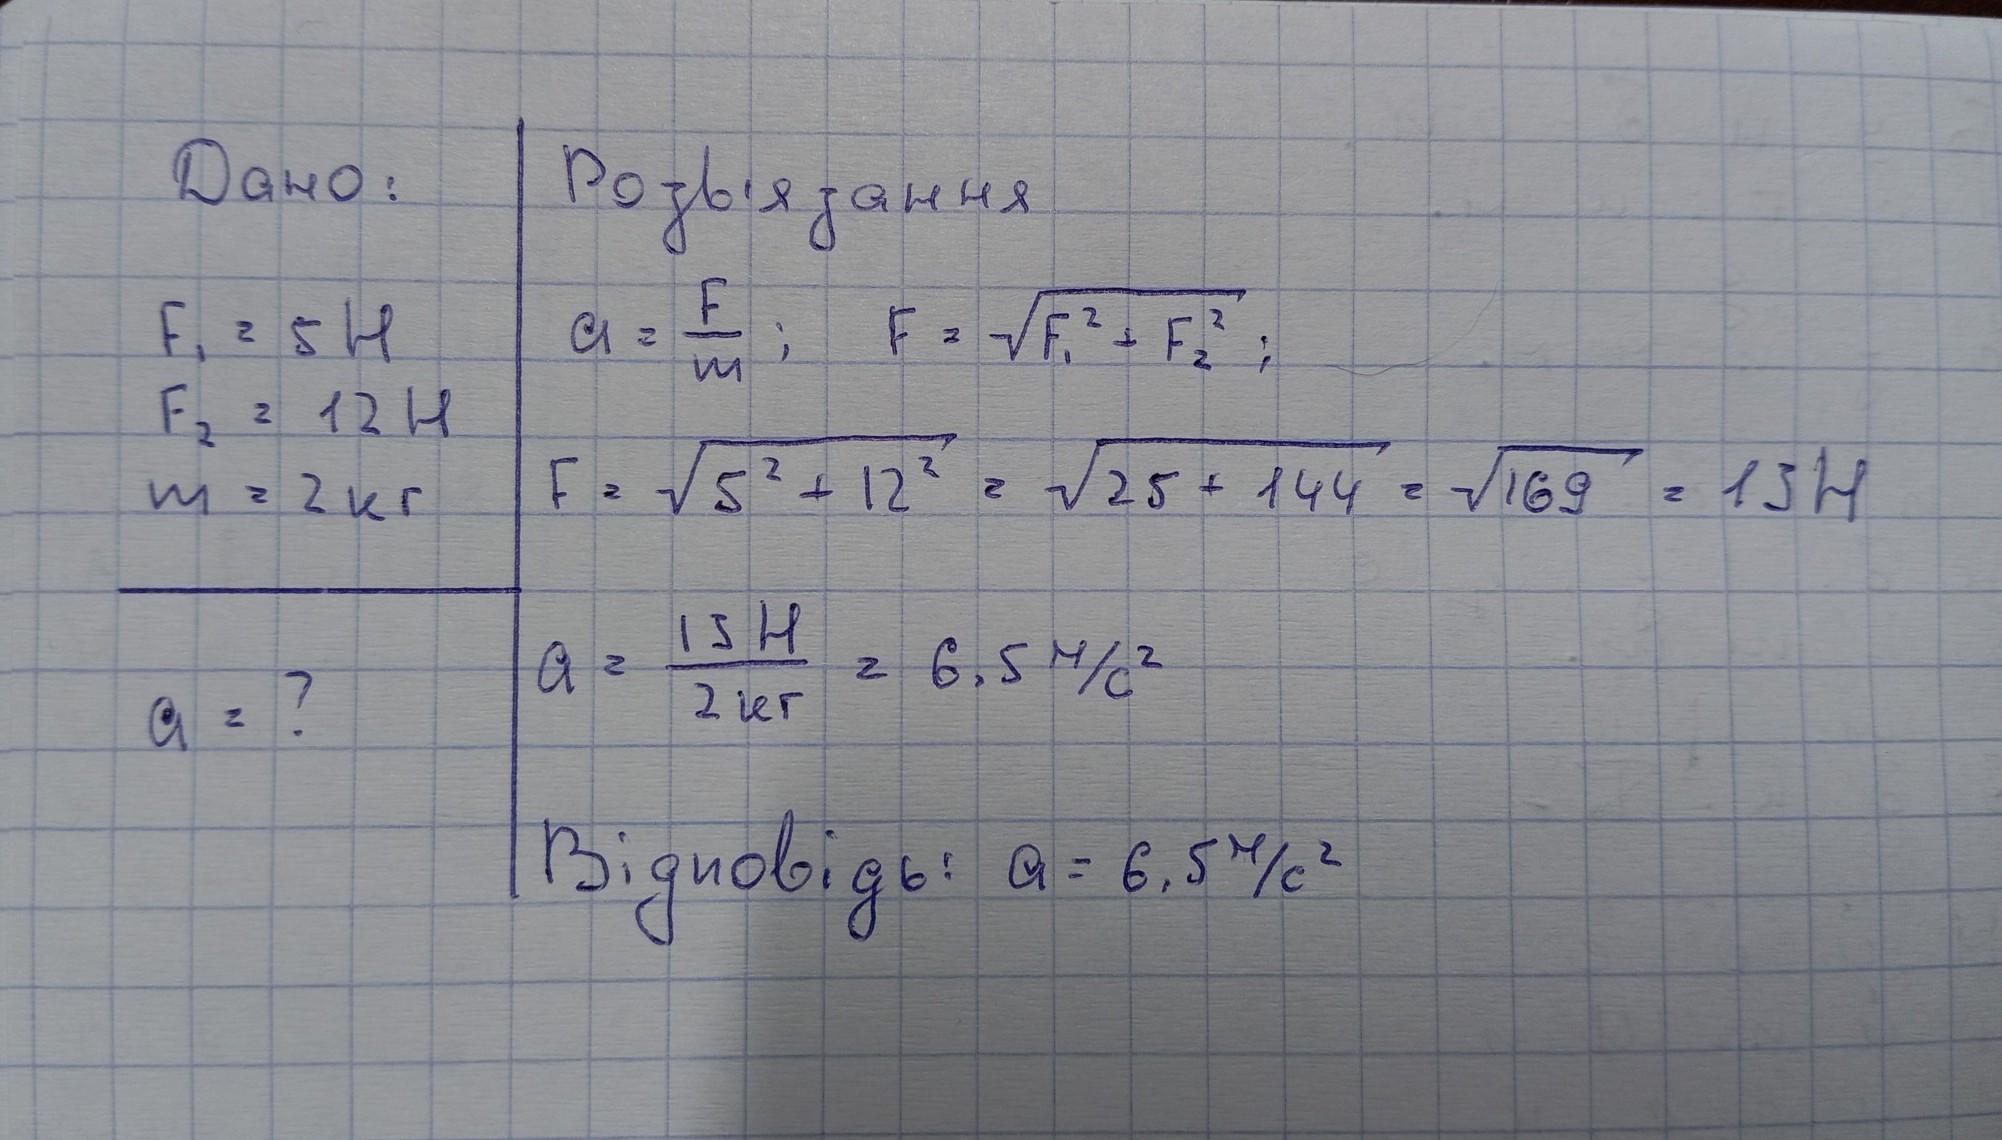 Дано:
F₁ = 5 Н
F₂ = 12 Н
m = 2 кг
a = ?
Розв'язання
a = F/m ; F = √(F₁² + F₂²) ;
F = √(5² + 12²) = √(25 + 144) = √169 = 13 Н
a = 13 Н / 2 кг = 6.5 м/с²
Відповідь: a = 6.5 м/с²